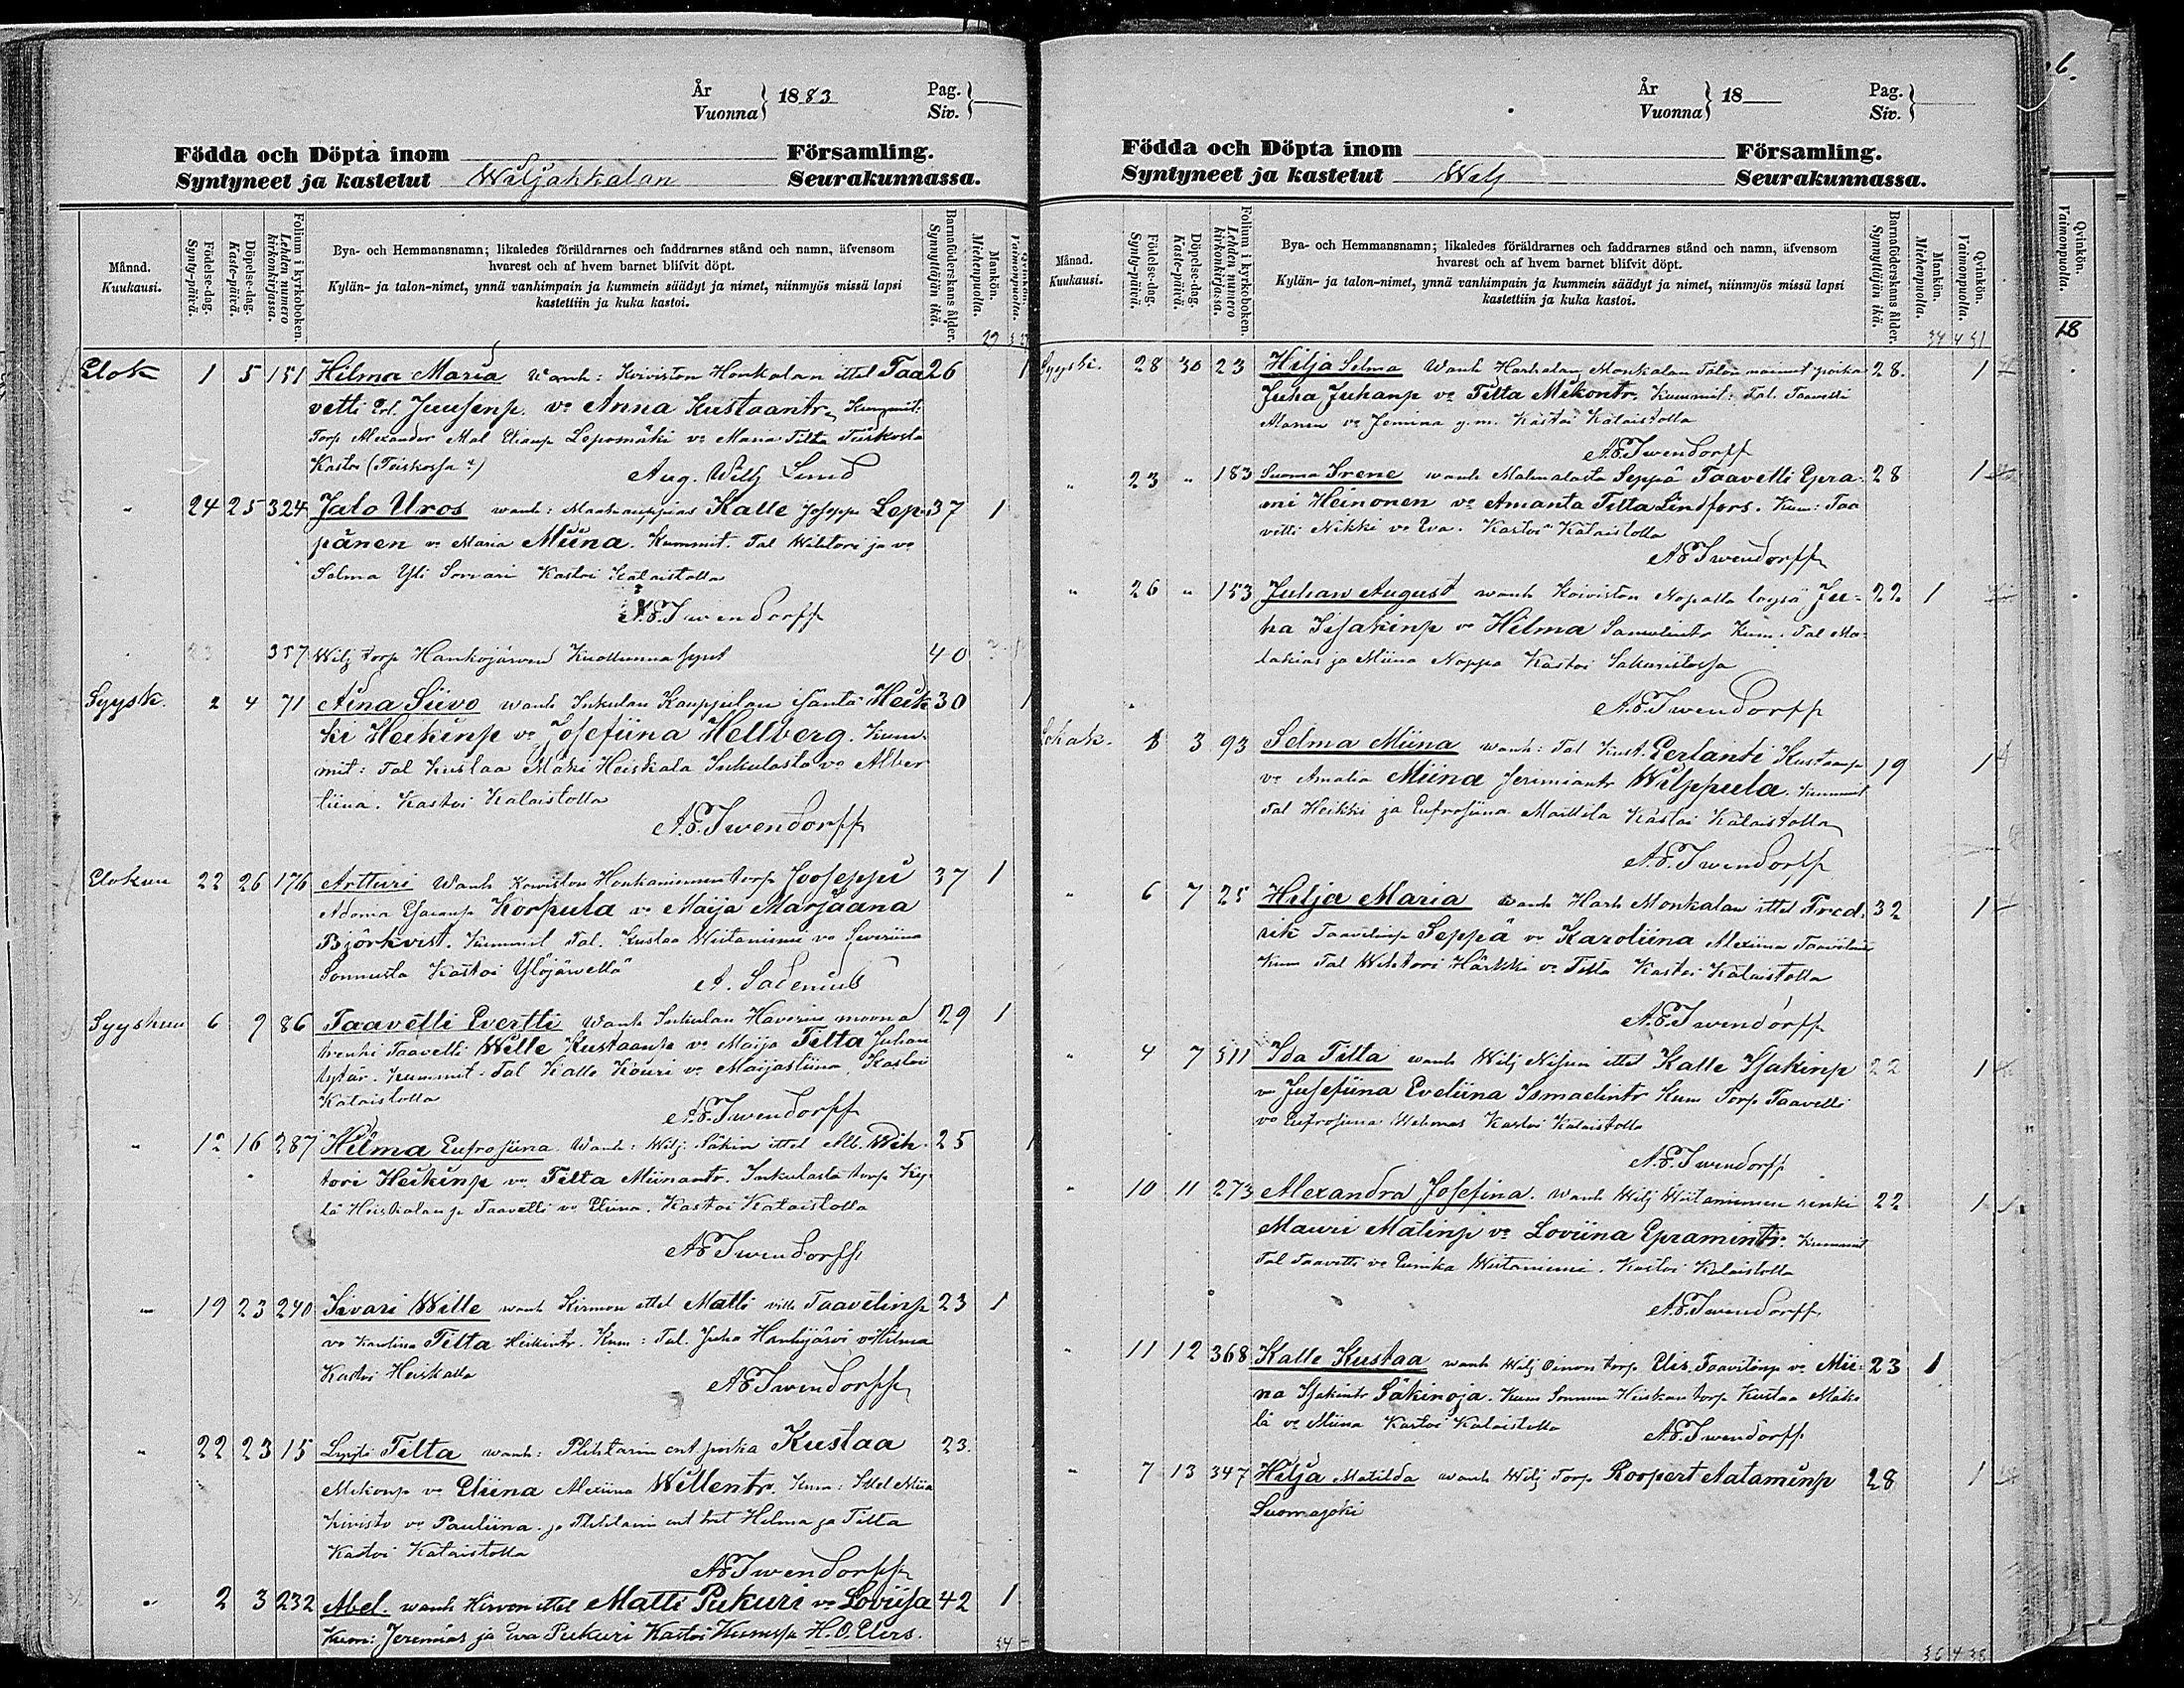 År
Vuonna } 1883
Pag.
Siv. }
Födda och Döpta inom Församling.
Syntyneet ja kastetut Wiljakkalan Seurakunnassa.
Månad.
Kuukausi.
Födelse-dag.
Synty-päivä.
Döpelse-dag.
Kaste-päivä.
Folium i kyrkoboken.
Lehden numero kirkonkirjassa.
Bya- och Hemmansnamn; likaledes föräldrarnes och faddrarnes stånd och namn, äfvensom
hvarest och af hvem barnet blifvit döpt.
Kylän- ja talon-nimet, ynnä vanhimpain ja kummein säädyt ja nimet, niinmyös missä lapsi
kastettiin ja kuka kastoi.
Barnaföderskans ålder.
Synnyttäjän ikä.
Mankön.
Miehenpuolia.
Qvinkön.
Vaimonpuolia.
29
Elok 1 5 151 Hilma Maria Wanh: Koiviston Honkalan ittel Taa 26 1
vetti Erl. Juusenp. vo Anna Kustaantr. Kummit:
Torp Alexander Mal Elianp Lepomäki vo Maria Tilta
Kastoi Aug. Wilh Lund
" 24 25 324 Jalo Uros wanh: Maakauppias Kalle Josepp Lep- 37 1
pänen vo Maria Miina. Kummit. Tal Wihtori ja vo
Selma Yli Sorvari Kastoi Kalaistolla
A.E. Iwendorff
23 357 Wilj torp Hankojärven Kuollunna synt 40
Syysk. 2 4 71 Aina Siivo wanh Inkulan Kauppilan isäntä Heik- 30 1
ki Heikinp vo Josefiina Hellberg. Kum-
mit: Tal Kustaa Mäki Heiskala Inkulasta vo Alber
tiina. Kastoi Kalaistolla
A.E. Iwendorff
Elokuu 22 26 176 Artturi Wanh Koiviston Honkaniemen torp Jooseppi 37 1
Adonia Esaianp Korpula vo Maija Marjaana
Björkvist. Kummit Tal. Kustaa Wiitaniemi vo Severiina
Kastoi Ylöjärvellä A. Salenius
Syyskuu 6 9 86 Taavetti Evertti Wanh Inkulan Haverin muona 29 1
trenki Taavetti Wille Kustaanp vo Maija Tilta Juhan
tytär. Kummit. Tal Kalle Kouri vo Maijastiina, Kastoi
Kalaistolla
A.E. Iwendorff
" 12 16 287 Hilma Eufrosiina. Wanh: Wilj. Säkin ittel Alb. Wih- 25 1
tori Heikinp vo Tilta Miinantr. Inkulasta torp Ky-
lä Heiskalan ja Taavetti vo Eliina. Kastoi Kalaistolla
A.E. Iwendorff
" 19 23 240 Iivari Wille wanh Kirmon ittel Matti ville Taavetinp 23 1
vo Karolina Tilta Heikintr. Kum: Tal. Juha Hankijärvi vo Hilma
Kastoi Heiskalla A.E. Iwendorff
" 22 23 15 Lyyti Tilta wanh: Plihtarin ent poika Kustaa 23.
Mikonp vo Eliina Alexiina Willentr. Kum: Ittel Miia
Kivisto vo Pauliina ja Plihtarin ent tret Hilma ja Tilta
Kastoi Kalaistolla
A.E. Iwendorff
" 2 3 232 Abel. wanh Hirvon ittel Matti Pukuri vo Loviisa 42 1
Kum: Jeremias ja Eva Pukuri Kastoi H.O. Elers.
34
År
Vuonna } 18
Pag.
Siv. }
Födda och Döpta inom Församling.
Syntyneet ja kastetut Wilj Seurakunnassa.
Månad.
Kuukausi.
Födelse-dag.
Synty-päivä.
Döpelse-dag.
Kaste-päivä.
Folium i kyrkoboken.
Lehden numero kirkonkirjassa.
Bya- och Hemmansnamn; likaledes föräldrarnes och faddrarnes stånd och namn, äfvensom
hvarest och af hvem barnet blifvit döpt.
Kylän- ja talon-nimet, ynnä vanhimpain ja kummein säädyt ja nimet, niinmyös missä lapsi
kastettiin ja kuka kastoi.
Barnaföderskans ålder.
Synnyttäjän ikä.
Mankön.
Miehenpuolia.
Qvinkön.
Vaimonpuolia.
34 4 51
Syysk. 28 30 23 Hilja Selma Wanh Harhalan Monkalan Talon nainut poika 28. 1
Juha Juhanp vo Tilta Mikontr. Kummit: Tal. Taavetti
Manen vo Jemina g.m. Kastoi Kalaistolla
A.E. Iwendorff
" 23 " 183 Suoma Irene wanh Malmalasta Seppä Taavetti Epra- 28 1
mi Heinonen vo Amanta Tilta Lindfors. Kum: Taa
vetti Nikki vo Eva. Kastoi Kalaistolla
A.E. Iwendorff
" 26 " 153 Juhan August wanh Koiviston Nopalla loysä Ju- 22 1
ha Iisakinp vo Hilma Samulintr Kum. Tal Ma-
takias ja Miina Noppa Kastoi
A.E. Iwendorff
Lokak. 1 3 93 Selma Miina wanh: Tal Kust. Eerlanti Kustaanp 19 1
vo Amalia Miina Jerimiantr Wilppula. Kummit
Tal Heikki ja Eufrosiina Mattila Kastoi Kalaistolla
A.E. Iwendorff
" 6 7 25 Hilja Maria wanh Harh Monkalan ittel Fred- 32 1
rik Taavetinp Seppä vo Karoliina Alexiina Taavetintr
Kum Tal Wihtori Härkki vo Tilta Kastoi Kalaistolla
A.E. Iwendorff
" 4 7 311 Ida Tilta wanh Wilj Nisun ittel Kalle Isakinp 22 1
vo Jusefiina Eveliina Ismaelintr Kum Torp Taavetti
vo Eufrosiina Kastoi Kalaistolla
A.E. Iwendorff
" 10 11 273 Alexandra Josefina. wanh Wilj Wiitaniemen renki 22 1
Mauri Matinp vo Loviina Epramintr. Kummit
Tal Taavetti vo Eurika Wiitaniemi. Kastoi Kalaistolla
A.E. Iwendorff
" 11 12 368 Kalle Kustaa wanh Wilj Oinon torp Elis. Taavetinp vo Mii- 23 1
na Isakintr Säkinoja. Kum Heiskan torp Kustaa Mäke
lä vo Miina Kastoi Kalaistolla A.E. Iwendorff
" 7 13 347 Hilja Matilda wanh Wilj Torp Roopert Aataminp 28 1
Luomajoki
36 4 38
6.
Qvinkön.
Vaimonpuolia.
18